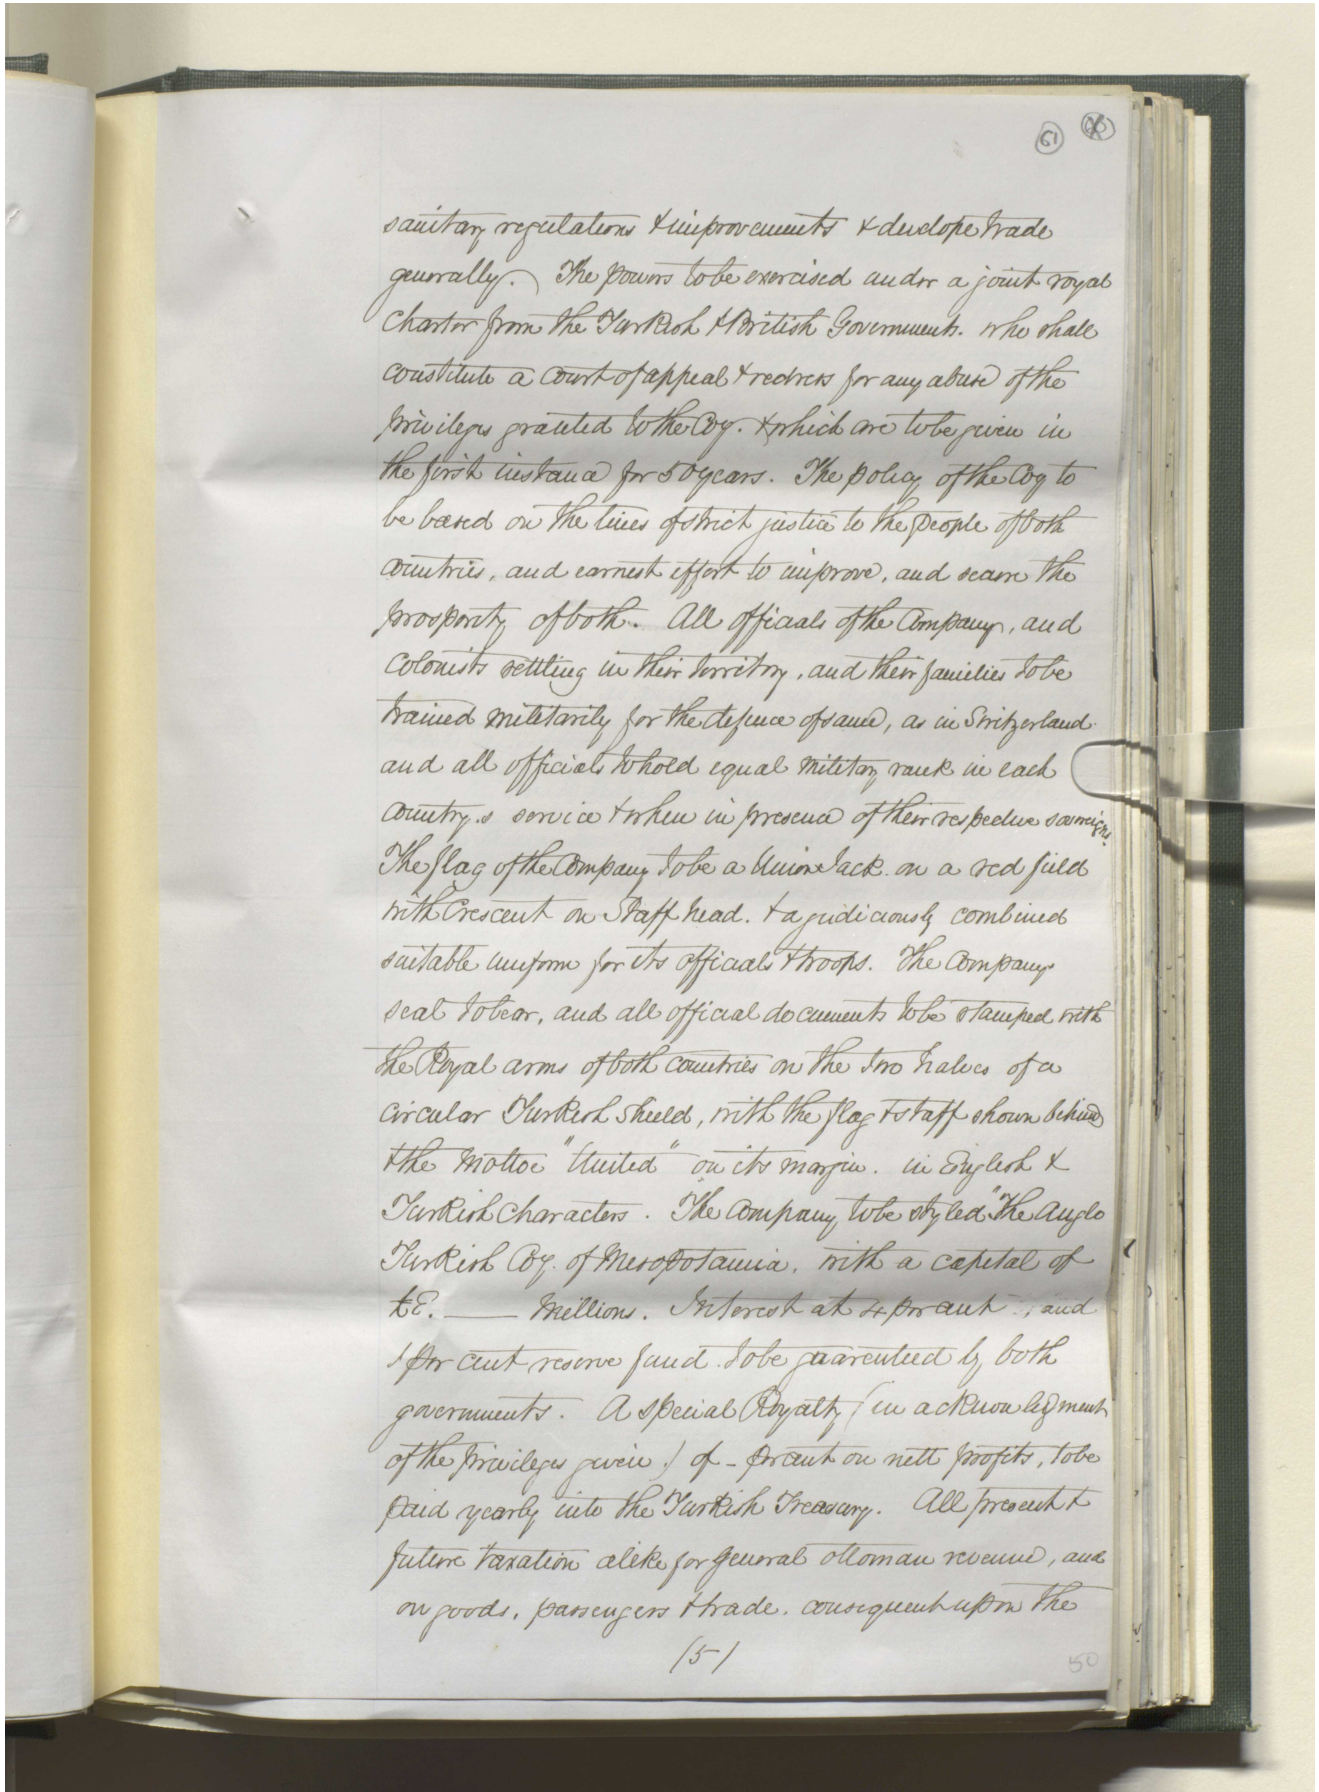 61
sanitary regulations & improvements & develope trade
generally. ) The powers to be exercised under a joint royal
Charter from the Turkish & British Governments. who shall
constitute a court of appeal & redress for any abuse of the
privileges granted to the Coy. & which are to be given in
the first instance for 50 years. The policy of the Coy to
be based on the lines of strict justice to the people of both
countries, and earnest effort to improve, and secure the
prosperity of both. All officials of the Company, and
Colonists settling in their territory, and their families to be
trained militarily for the defence of same, as in Switzerland.
and all officials to hold equal military rank in each
country.s service & when in presence of their respective sovereigns.
The flag of the Company to be a Union Jack. on a red field
with Crescent on Staff head. & a judiciously combined
suitable uniform for its officials & troops. The Companys
seal to bear, and all official documents to be stamped with
the Royal arms of both countries on the two halves of a
circular Turkish shield, with the flag & staff shown behind
& the mottoe "United" on its margin. in English &
Turkish characters. The Company to be styled "The Anglo
Turkish Coy. of Mesopotamia. with a capital of
£E. —— Millions. Interest at 4 per cent , and
1 per cent reserve fund. to be guarenteed by both
governments. A special Royalty (in acknowledgment
of the privileges given.) of - per cent on nett profits, to be
paid yearly into the Turkish Treasury. All present &
future taxation alike for general ottoman revenue, and
on goods, passengers & trade. consequent upon the
(5)
50